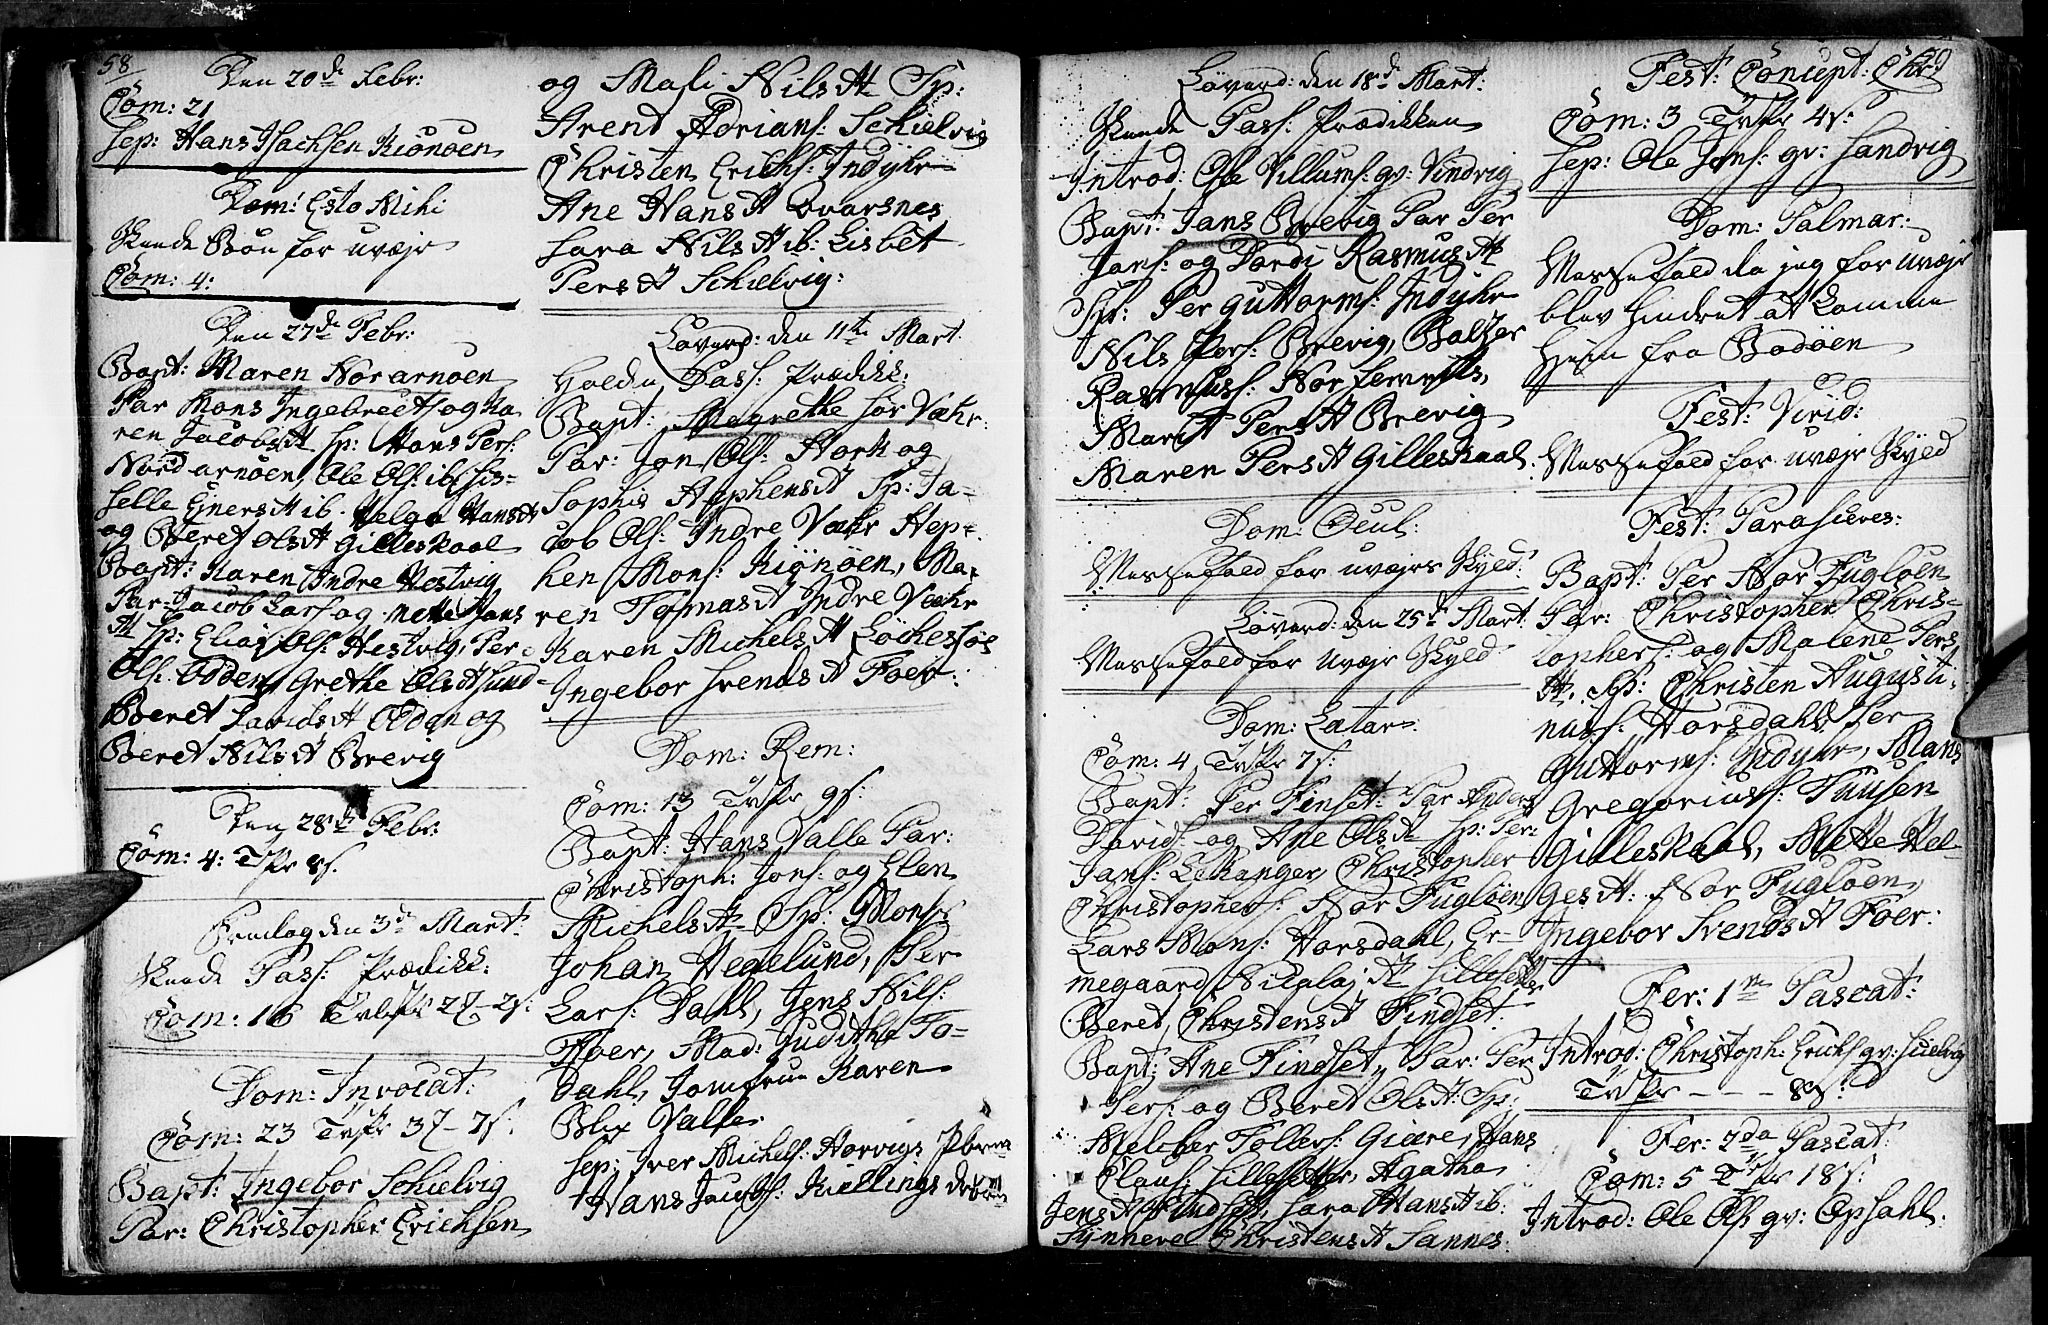 58
Den 20de Febr:
Com: 21
Sep: Hans Isachsen Kiönöen
Dom: Esto Mihi
Skeede Bön for uvejr
Com: 4:
Den 27de Febr:
Bapt: Maren Nor arnöen
Par Mons Ingebrectsf og Ka-
ren Jacobsdt Sp: Hans Pers:
Nord arnöen, Ole Olsf: ib: Sis-
selle Ejnersdt ib. Helga Hansdt
og Beret Olsdt Gilleskaal
Bapt: Karen Indre Hestvig
Par: Jacob Larsf og Mette Hans
dt Sp: Elias Olsf: Hestvig, Per
Olsf. Odden, Grethe Olsdt Sund
Beret Davidsdt Odden og
Beret Nilsdt Brevig
Den 28de Febr:
Com: 4: Tvkr 8s.
Fredag den 3de Mart:
Skeede Pass: Prædikk:
Com: 16
Dom: Invocat:
Com: 23
Bapt: Ingebor Schielvig
Par: Christopher Erichsen
og Masi Nilsdt Sp:
Arent Adriansf: Schielvig
Christen Erichsf: Indyhr
Ane Hansdt Qvarsnes
Sara Nilsdt ib: Lisbet
Persdt Schielvig:
Löverd: den 11te Mart
Holden Pass: Prædikk:
Bapt: Megrethe Sör Væhr:
Par: Jon Olsf: Stork og
Sophie Stephensdt Sp: Ja-
cob Olsf: Indre Væhr Step-
hen Monsf: Kiönöen, Ma-
ren Tomasdt Indre Væhr
Karen Michelsdt
Ingebor Svendsdt Foer:
Dom: Rem:
Com: 13 Tvkr 9s:
Bapt: Hans Valle Par:
Christoph: Jonsf: og Elen
Michelsdt Sp: Monsr
Johan Hegelund, Per
Larsf: Dahl, Jens Nilsf:
Foer, Mad: Judithe To-
Dahl, Jomfrue Karen
Blix Valle
Sep: Iver Michelsf: Horvigs
Hans Jacobsf: Kiellings
Löverd: den 18de Mart:
Skeede Pass: Prædikken
Introd: Ole Villumsf: gv: Vindvig
Bapt: Jans Brevig Par Per
Jansf: og Dordi Rasmusdt
Sp: Per Guttormsf: Indyhr
Nils Persf: Brevig, Baltzer
Rasmusf: Nor
Marit Persdt Brevig
Maren Persdt Gilleskaal
Dom: Ocul:
Messefald for uvejrs Skyld:
Löverd: den 25de Mart
Messefald for uvejr Skyld
Dom: Latar:
Com: 4 Tvkr 7s:
Bapt: Per Finset: Par Anders
Davidsf: og Ane Olsdt Sp: Per
Jansf: Lekanger, Christopher
Christophersf: Nor Fuglöen,
Lars Monsf: Horsdahl, Er-
megaard Nicolajdt
Beret Christensdt Findset:
Bapt: Ane Findset, Par: Per
Persf: og Beret Olsdt: Sp:
Melcher Tollersf: Giære, Hans
Clausf: Agatha
Jensdt Findset, Sara Hansdt ib:
Synneve Christensdt Sannes:
Fest: Concept: Chr:
Com: 3 Tvkr 4s:
Sep: Ole Jonsf: gv: Sandvig
Dom: Palmar:
Messefald da jeg for uvejr
blev hindret at komme
hjem fra Bodöen
Fest: Virid:
Messefald for uvejr Skyld
Fest: Parasceves:
Bapt: Per Nor Fuglöen
Par: Christopher Chris-
tophersf: og Malene Pers
dt. Sp: Christen Augusti-
nusf: Horsdahl, Per
Guttormsf: Indyhr, Mans
Gregoriusf: Tuusen
Gilleskaal, Mette Hel-
gesdt: Nor Fuglöen,
Ingebor Svendsdt Foer:
Fer: 1me Pascat:
Introd: Christoph: Erichsf gv:
Tvkr - - - 8s:
Fer: 2da Pascat:
Com: 5 Tvkr 18s:
Introd: Ole Olsf gv: Opsahl: